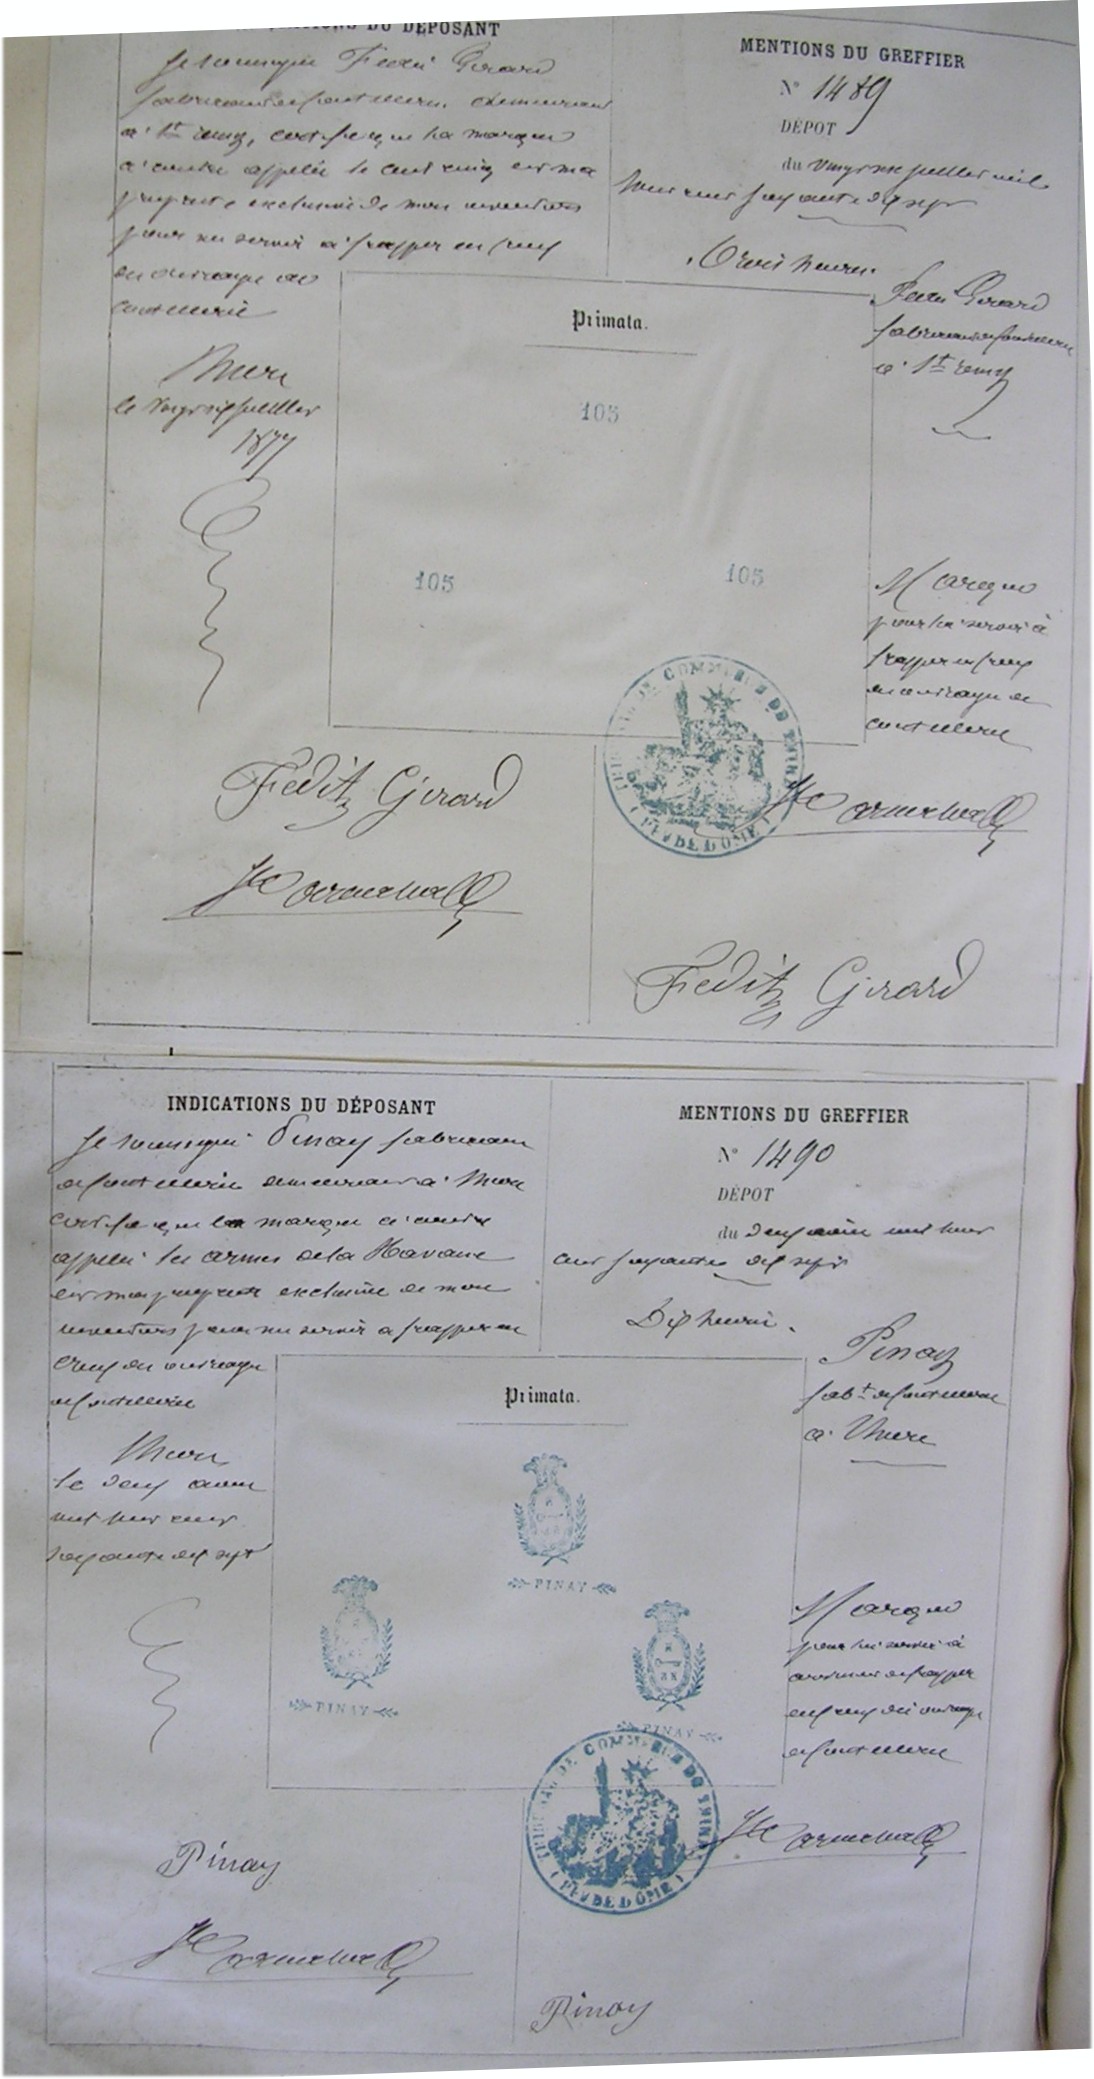 INDICATIONS DU DÉPOSANT
Je soussigné Girard
fabricant de coutellerie demeurant
à St remy, certifie que la marque
ci contre appelée le cent cinq est ma
propriété exclusive de mon
pour me servir à frapper en creux
de
coutellerie
Thiers
le vingt six juillet
1877
MENTIONS DU GREFFIER
N° 1489
DÉPOT
du vingt six juillet mil
huit cent soixante dix sept
Trois heures.
Girard
fabricant de coutellerie
à St remy
Primata.
105
105
105
Marque
pour lui servir à
frapper en creux
de
coutellerie
TRIBUNAL DE COMMERCE DE THIERS
(PUY DE DÔME)
Feditz Girard
Feditz Girard
INDICATIONS DU DÉPOSANT
Je soussigné Pinay fabricant
de coutellerie demeurant à Thiers
certifie que la marque ci contre
appelée les armes de la Havane
est ma propriété exclusive de mon
pour me servir à frapper en
creux
de coutellerie
Thiers
le deux aout
mil huit cent
soixante dix sept
MENTIONS DU GREFFIER
N° 1490
DÉPOT
du deux août mil huit
cent soixante dix sept
Dix heures.
Pinay
fabt de coutellerie
à Thiers
Primata.
PINAY
PINAY
PINAY
Marque
pour lui servir à
frapper
en creux
de coutellerie
TRIBUNAL DE COMMERCE DE THIERS
(PUY DE DÔME)
Pinay
Pinay